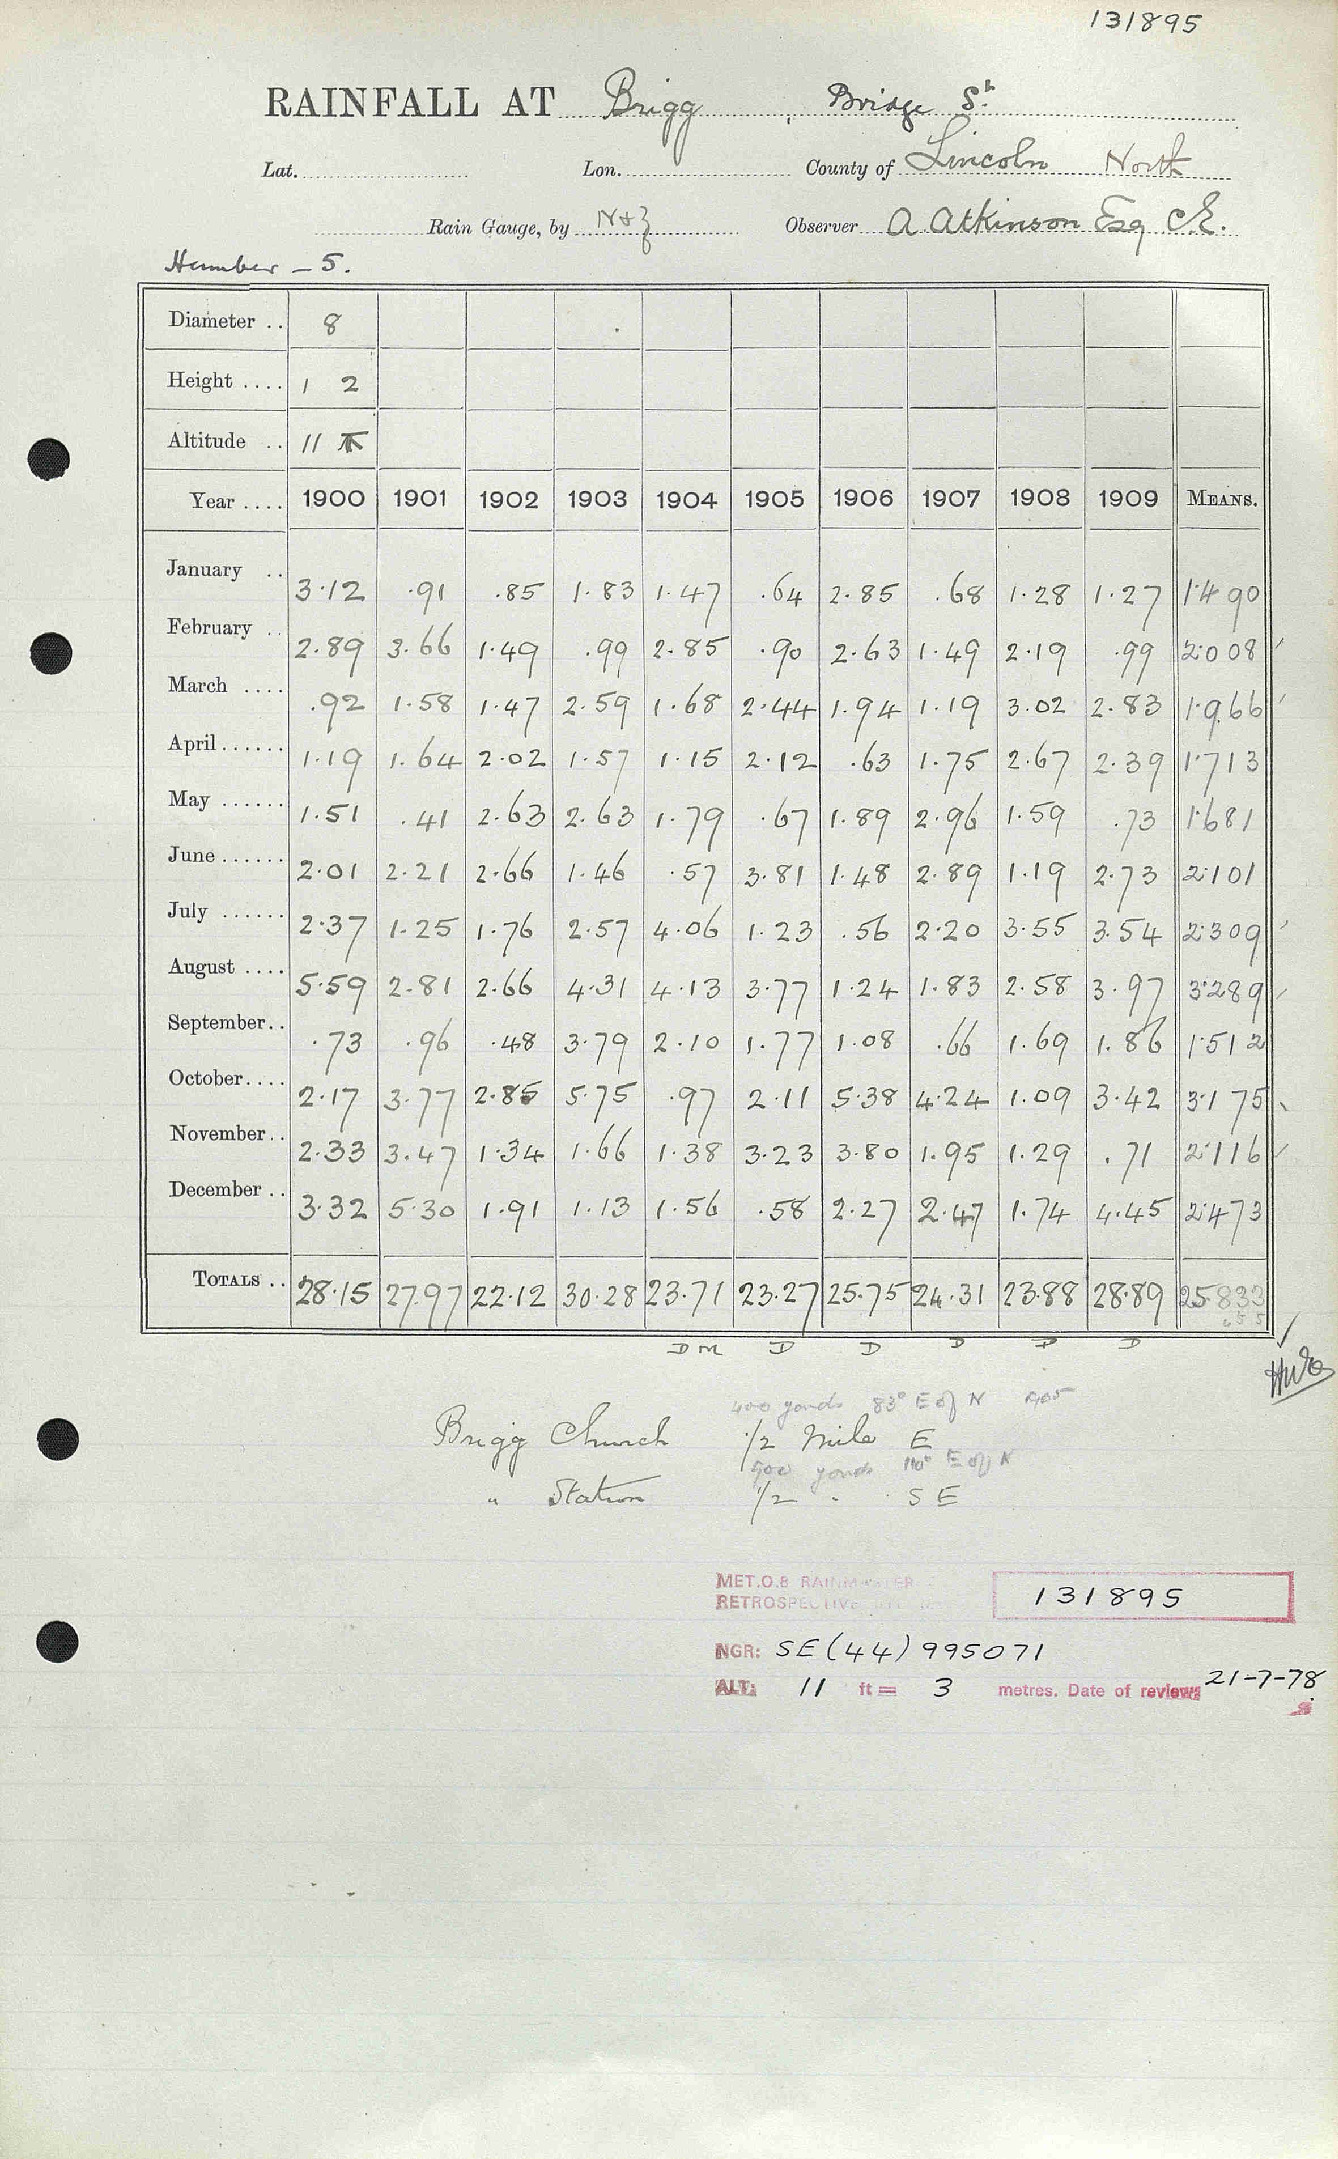 131895
RAINFALL AT Brigg, Bridge St.
Lat. Lon. County of Lincoln North
Rain Gauge, by N+Z Observer A Atkinson Esq C.E.
Humber - 5.
Diameter .. 8
Height .... 1 2
Altitude .. 11
Year .... 1900 1901 1902 1903 1904 1905 1906 1907 1908 1909 MEANS.
January .. 3.12 .91 .85 1.83 1.47 .64 2.85 .68 1.28 1.27 1.490
February .. 2.89 3.66 1.49 .99 2.85 .90 2.63 1.49 2.19 .99 2.008
March .... .92 1.58 1.47 2.59 1.68 2.44 1.94 1.19 3.02 2.83 1.966
April ...... 1.19 1.64 2.02 1.57 1.15 2.12 .63 1.75 2.67 2.39 1.713
May ...... 1.51 .41 2.63 2.63 1.79 .67 1.89 2.96 1.59 .73 1.681
June ...... 2.01 2.21 2.66 1.46 .57 3.81 1.48 2.89 1.19 2.73 2.101
July ...... 2.37 1.25 1.76 2.57 4.06 1.23 .56 2.20 3.55 3.54 2.309
August .... 5.59 2.81 2.66 4.31 4.13 3.77 1.24 1.83 2.58 3.97 3.289
September.. .73 .96 .48 3.79 2.10 1.77 1.08 .66 1.69 1.86 1.512
October.... 2.17 3.77 2.85 5.75 .97 2.11 5.38 4.24 1.09 3.42 3.175
November.. 2.33 3.47 1.34 1.66 1.38 3.23 3.80 1.95 1.29 .71 2.116
December .. 3.32 5.30 1.91 1.13 1.56 .58 2.27 2.47 1.74 4.45 2.473
TOTALS .. 28.15 27.97 22.12 30.28 23.71 23.27 25.75 24.31 23.88 28.89 25.833
DM D D D D D
400 yards 83° E of N 1905
Brigg Church 1/2 Mile E
900 yards 110° E of N
" Station 1/2 " SE
MET.O.8 RAINMASTER
RETROSPECTIVE 131895
NGR: SE (44) 995071
ALT: 11 ft = 3 metres. Date of review: 21-7-78